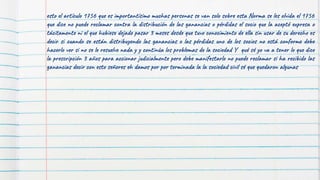 esto el artículo 1756 que es importantísimo muchas personas se van solo sobre esta Norma se les olvida el 1756
que dice no puede reclamar contra la distribución de las ganancias o pérdidas el socio que la aceptó expresa o
tácitamente ni el que hubiese dejado pasar 3 meses desde que tuvo conocimiento de ella sin usar de su derecho es
decir si cuando se están distribuyendo las ganancias o las pérdidas uno de los socios no está conforme debe
hacerlo ver si no se lo resuelve nada y y continúa los problemas de la sociedad Y qué sé yo va a tener lo que dice
la prescripción 3 años para accionar judicialmente pero debe manifestarlo no puede reclamar si ha recibido las
ganancias decir con este señores eh damos por por terminada la la sociedad civil sé que quedaron algunas